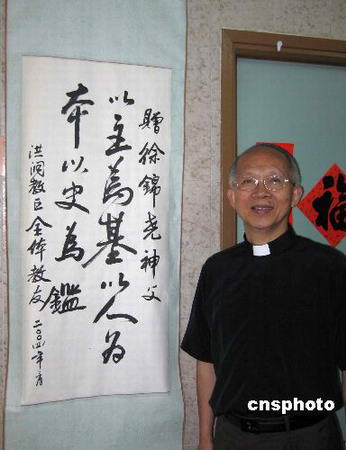 贈徐錦堯神父
以主為基以人为
本以史為鑑
洪洞教区全体教友
二〇〇四年 月
福
cnsphoto